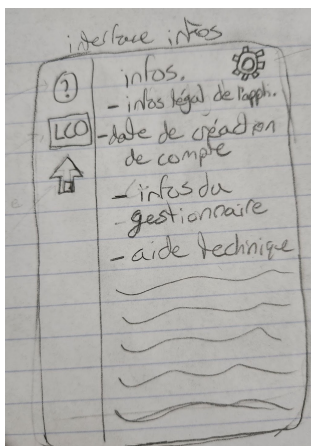 interface infos
?
infos.
- infos légal de l'appli.
LCO
-date de création
de compte
- infos du
- gestionnaire
- aide technique